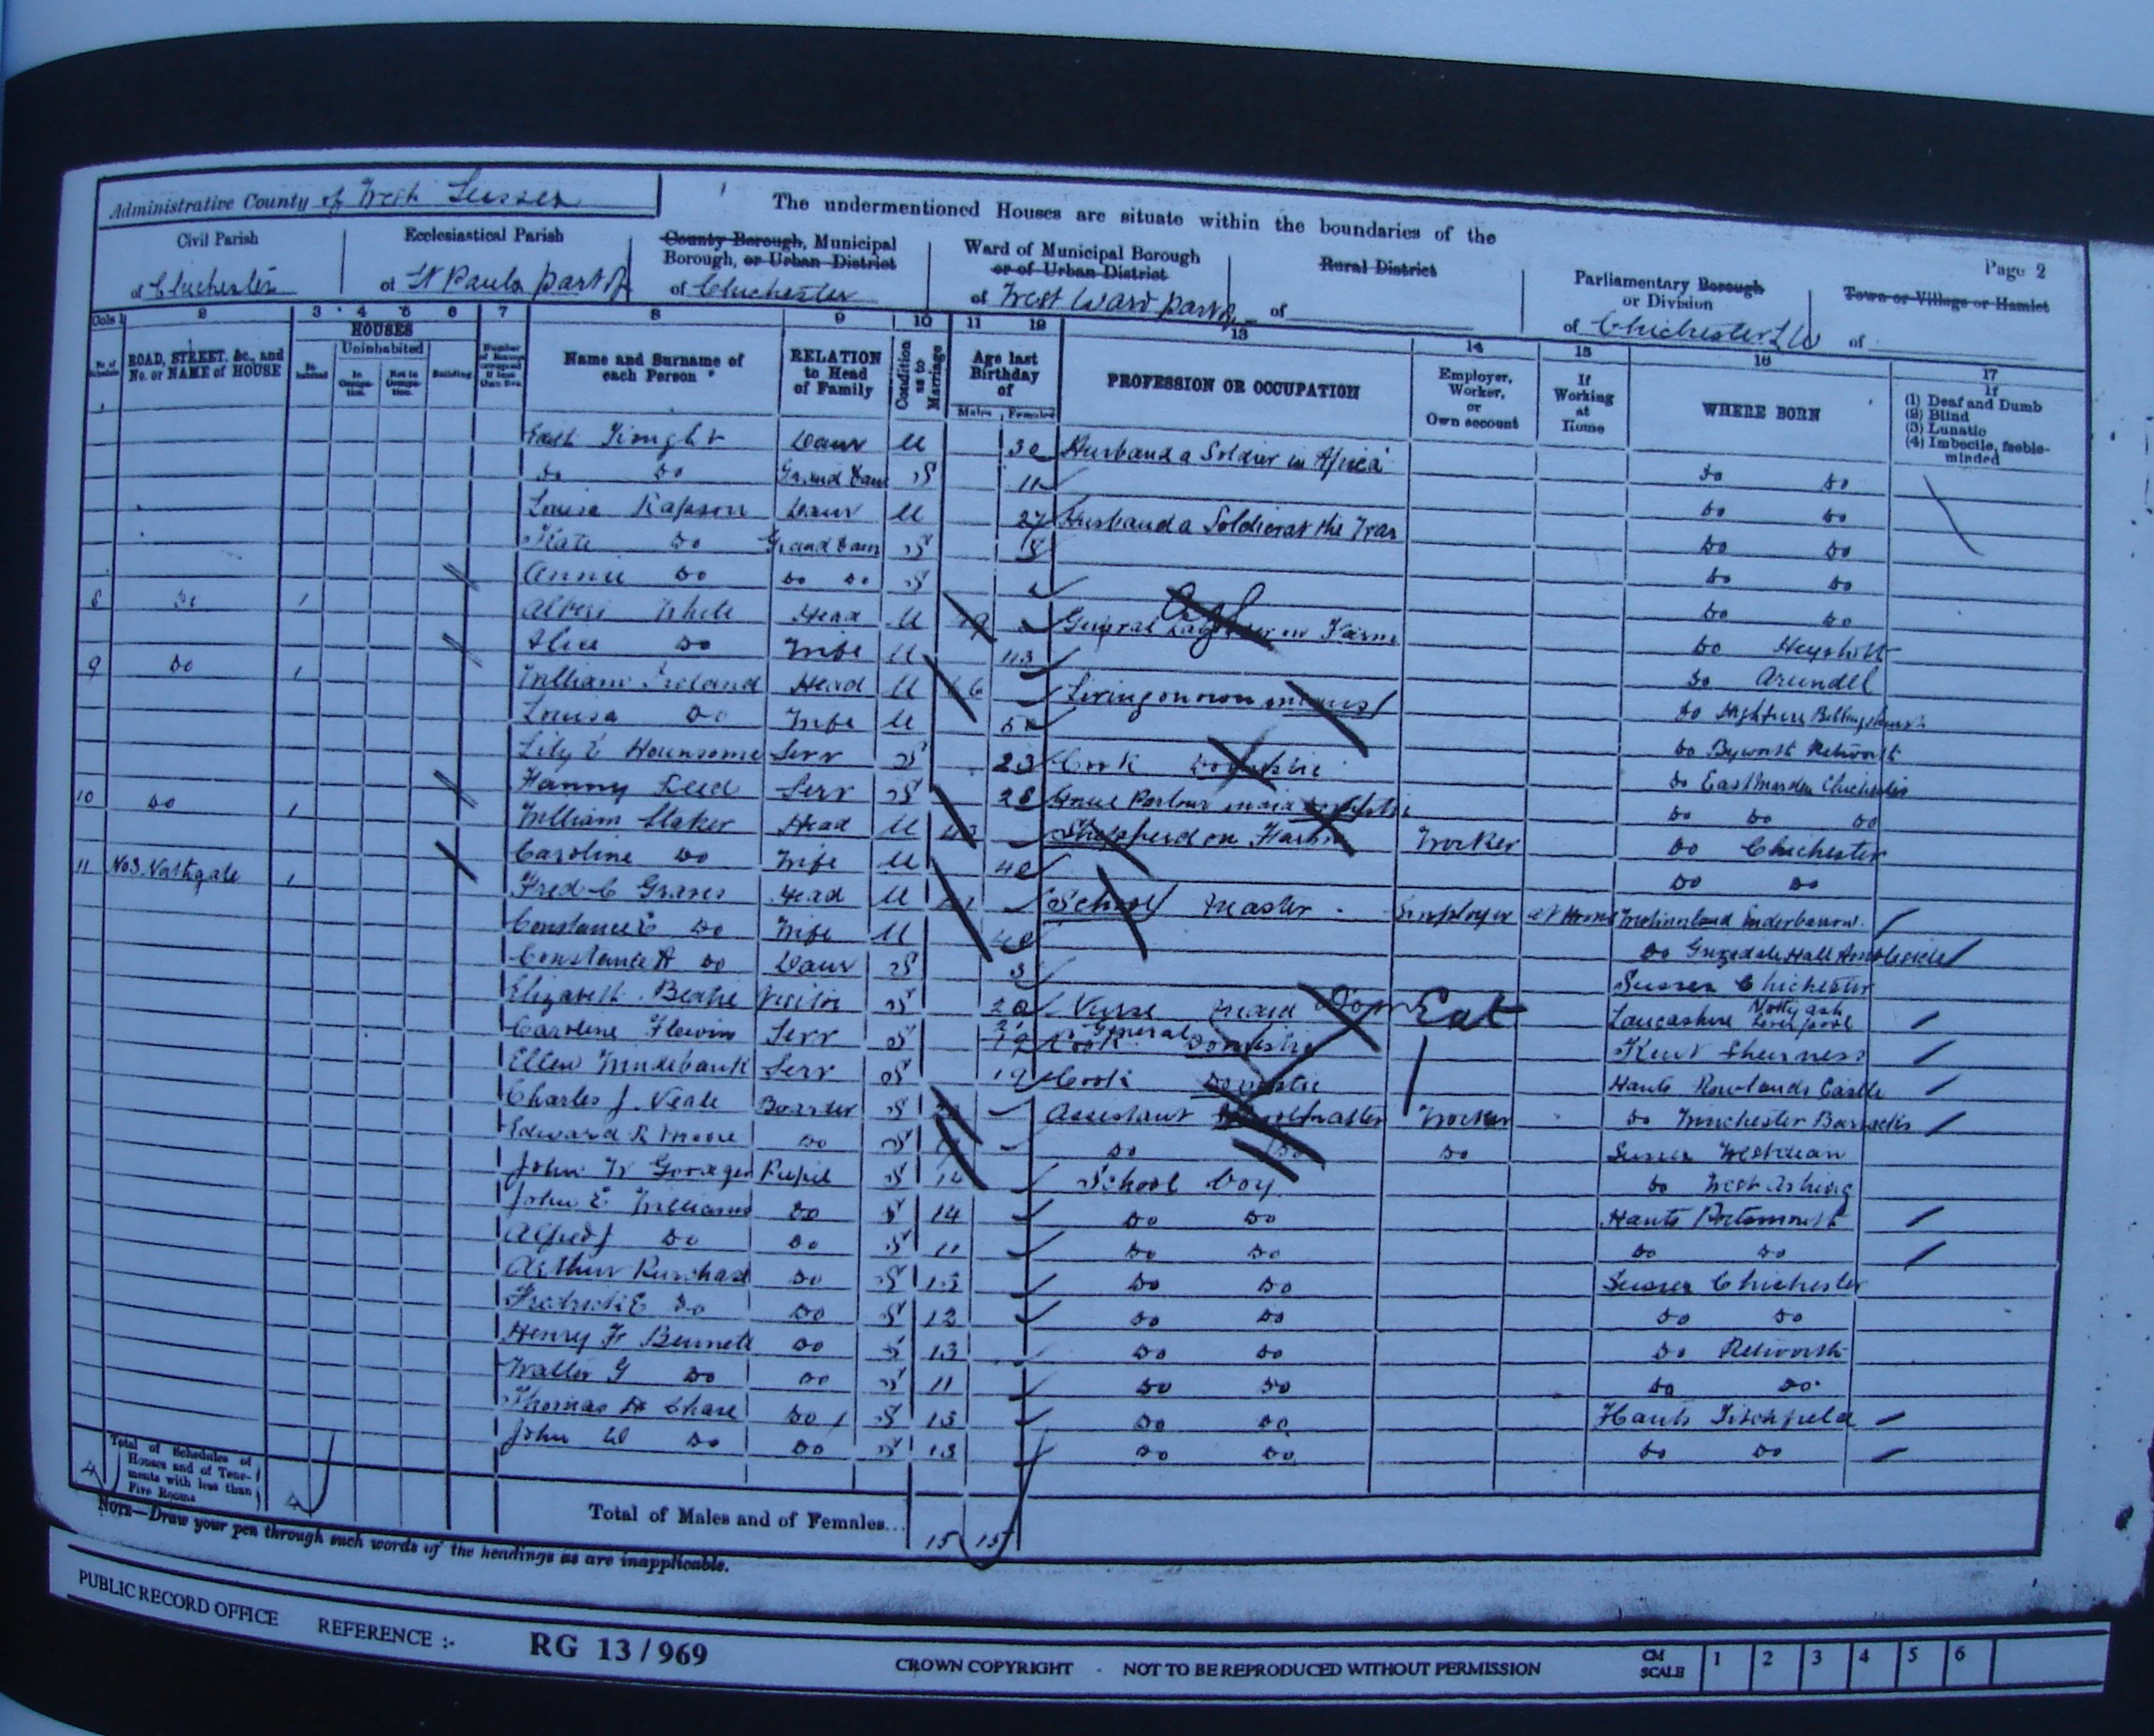 Administrative County of West Sussex
The undermentioned Houses are situate within the boundaries of the
Page 2
Civil Parish
of Chichester
Ecclesiastical Parish
of St Pauls part of
County Borough, Municipal Borough, or Urban District
of Chichester
Ward of Municipal Borough or of Urban District
of West Ward part of
Rural District
of
Parliamentary Borough or Division
of Chichester
Town or Village or Hamlet
of
Cols 1 2 3 4 5 6 7 8 9 10 11 12 13 14 15 16 17
No. of Schedule
ROAD, STREET, &c., and No. or NAME of HOUSE
HOUSES
Inhabited
Uninhabited
In Occupation.
Not in Occupation.
Building
Name and Surname of each Person
RELATION to Head of Family
Condition as to Marriage
Age last Birthday of
Males Females
PROFESSION OR OCCUPATION
Employer, Worker, or Own account
If Working at Home
WHERE BORN
If
(1) Deaf and Dumb
(2) Blind
(3) Lunatic
(4) Imbecile, feeble-minded
Daur M 30 Husband a Soldier in Africa Do Do
Do Do Grand Daur S 11 Do Do
Louisa Rapson Daur M 27 Husband a Soldier at the War Do Do
Kate Do Grand Daur S 8 Do Do
Annie Do Do Do S Do Do
8 Do 1 Albert White Head M General Labourer on Farm Do Heyshott
Alice Do Wife M 43 Do Arundel
9 Do 1 William Ireland Head M 66 Living on own means Do Billingshurst
Louisa Do Wife M Do Byworth Petworth
Lily E Hounsome Serv S 23 Cook Domestic Do East Marden Chichester
Fanny Leed Serv S 28 Parlour maid Domestic Do Do Do
10 Do 1 William Staker Head M 43 Shepperd on Farm Worker Do Chichester
Caroline Do Wife M 40 Do Do
11 No 3. Northgate 1 Fred C Graves Head M School Master Employer at Home Westmorland Underbarrow
Constance E Do Wife M 40 Do Hall Ambleside
Constance A Do Daur S 3 Sussex Chichester
Elizabeth Beatie Visitor S 20 Nurse maid Dom Lancashire Notty ash Liverpool
Caroline Flewin Serv S 19 General Cook Domestic Kent Sheerness
Ellen Serv S 19 Cook Domestic Hants Rowlands Castle
Charles J. Neale Boarder S Assistant Schoolmaster Worker Do Winchester Barracks
Edward R Moore Do S Do Do Do Sussex Westdean
John W Pupil S School boy Do West Ashling
John E Williams Do S 14 Do Do Hants Portsmouth
Alfred J Do Do S 11 Do Do Do Do
Arthur Purchase Do S 13 Do Do Sussex Chichester
Fredrick E Do Do S 12 Do Do Do Do
Henry F Bennett Do S 13 Do Do Do Petworth
Walter G Do Do S 11 Do Do Do Do
Thomas H Chase Do S 13 Do Do Hants Titchfield
John W Do Do S 13 Do Do Do Do
4 Total of Schedules of Houses and of Tenements with less than Five Rooms 4
Total of Males and of Females... 15 15
NOTE—Draw your pen through such words of the headings as are inapplicable.
PUBLIC RECORD OFFICE REFERENCE :- RG 13 / 969
CROWN COPYRIGHT - NOT TO BE REPRODUCED WITHOUT PERMISSION
CM SCALE 1 2 3 4 5 6